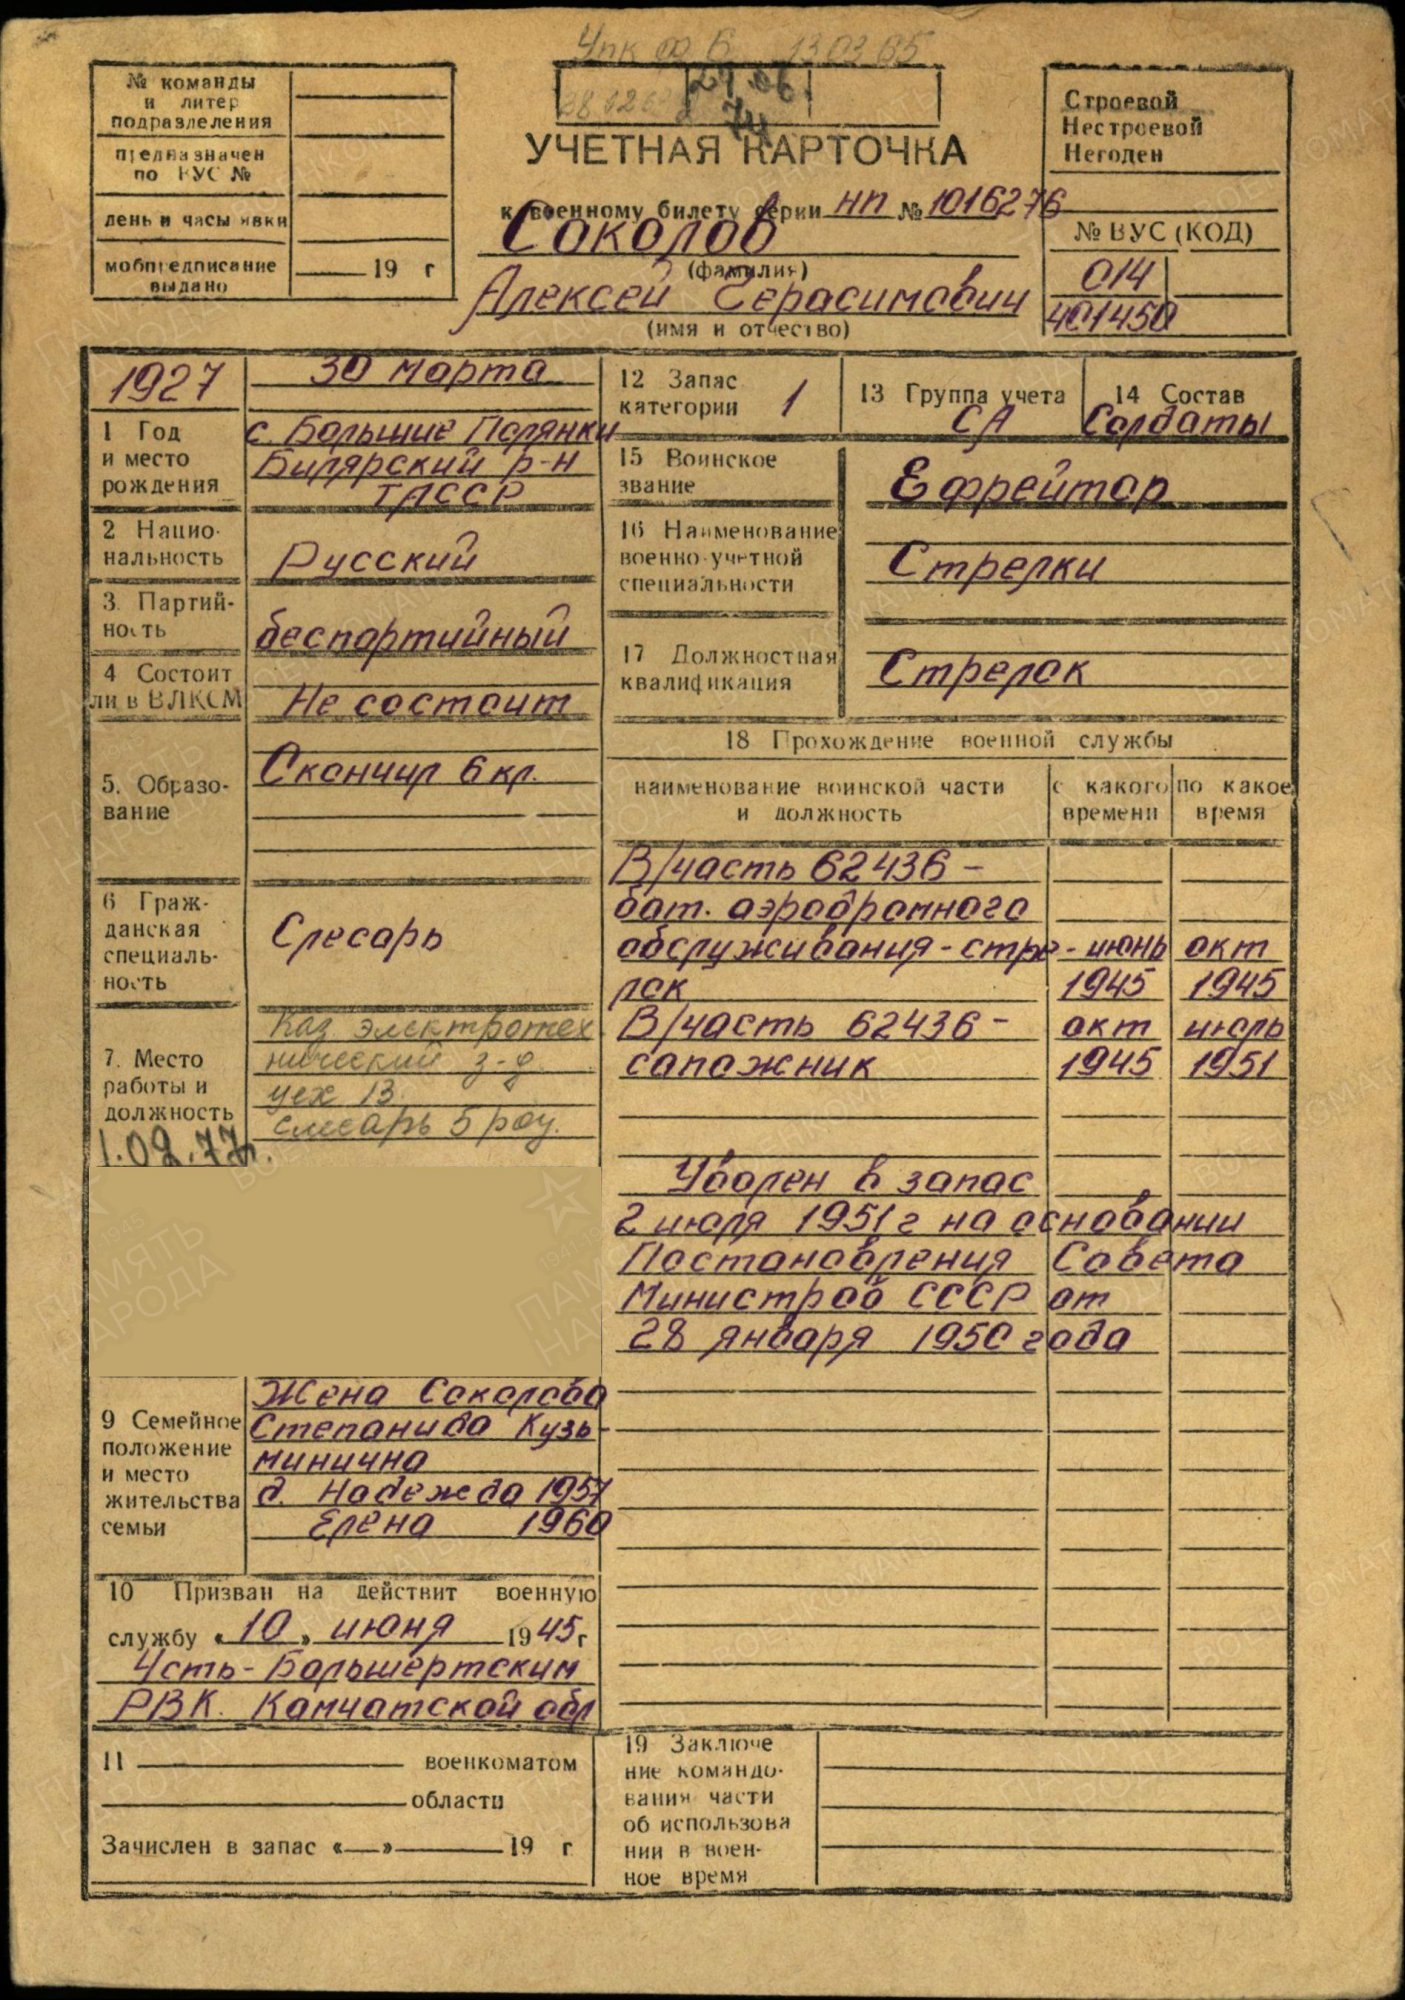 Упк ф 6 13 03 85
№ команды
и литер
подразделения
предназначен
по ВУС №
день и часы явки
мобпредписание
выдано
19 г
29.06.
74
УЧЕТНАЯ КАРТОЧКА
к военному билету серии НП № 1016276
Соколов
(фамилия)
Алексей Герасимович
(имя и отчество)
Строевой
Нестроевой
Негоден
№ ВУС (КОД)
014
401450
1927
30 марта
1 Год
и место
рождения
с. Большие Полянки
Билярский р-н
ТАССР
2 Нацио-
нальность
Русский
3. Партий-
ность
беспартийный
4 Состоит
ли в ВЛКСМ
Не состоит
5. Образо-
вание
Окончил 6 кл.
6 Граж-
данская
специаль-
ность
Слесарь
7. Место
работы и
должность
Каз электротех
нический з-д.
цех 13.
слесарь 5 раз.
1.02.77г.
9 Семейное
положение
и место
жительства
семьи
Жена Соколова
Степанида Кузь-
минична
д. Надежда 1957
Елена 1960
10 Призван на действит военную
службу «10» июня 1945 г
Усть-Большерецким
РВК. Камчатской обл
11 военкоматом
области
Зачислен в запас « » 19 г
12 Запас
категории 1
13 Группа учета
СА
14 Состав
Солдаты
15 Воинское
звание
Ефрейтор
16 Наименование
военно-учетной
специальности
Стрелки
17 Должностная
квалификация
Стрелок
18 Прохождение военной службы
наименование воинской части
и должность
с какого
времени
по какое
время
В/часть 62436 -
бат. аэродромного
обслуживания - стре- июнь окт
лок 1945 1945
В/часть 62436 - окт июль
сапожник 1945 1951
Уволен в запас
2 июля 1951 г на основании
Постановления Совета
Министров СССР от
28 января 1950 года
19 Заключе
ние командо-
вания части
об использова
нии в воен-
ное время
ПАМЯТЬ
НАРОДА